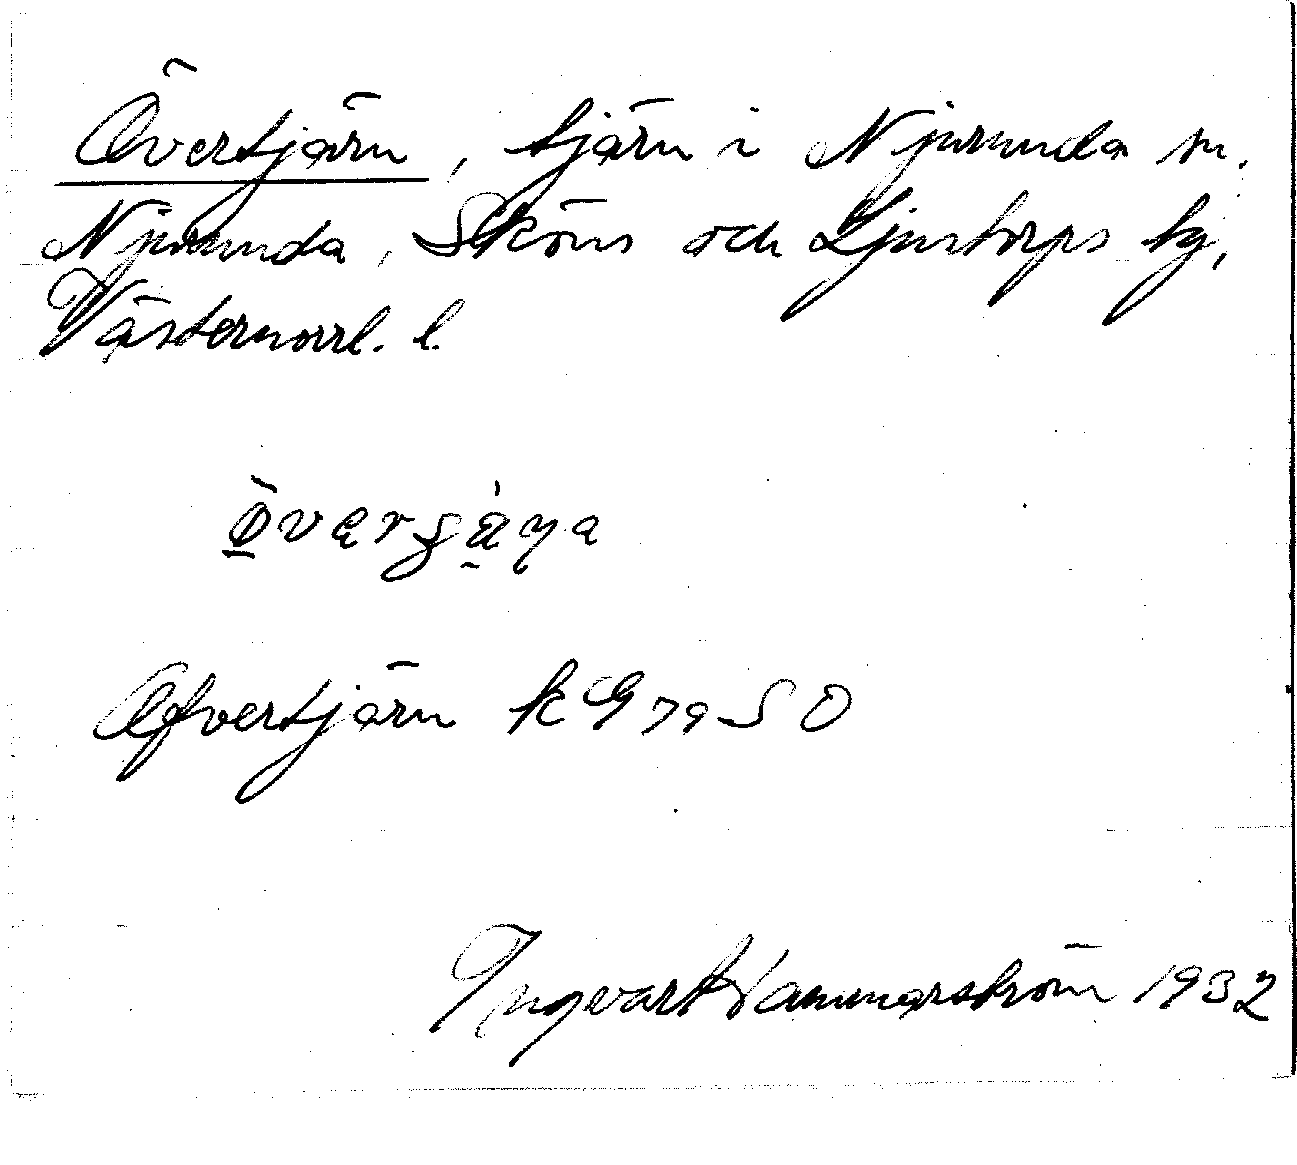 Övertjärn, tjärn i Njurunda sn.
Njurunda, Sköns och Ljustorps tg,
Västernorrl. l.
Öfvertjärn KG 79 SO
Ingvar Hammarström 1932